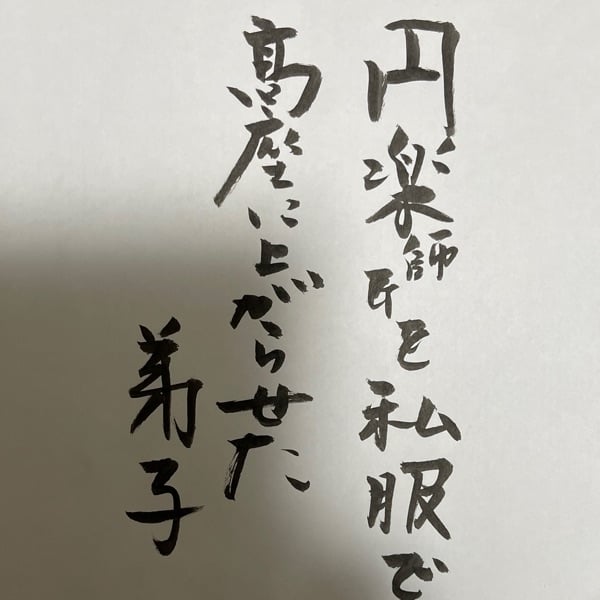 円楽師匠を私服で
高座に上がらせた
弟子